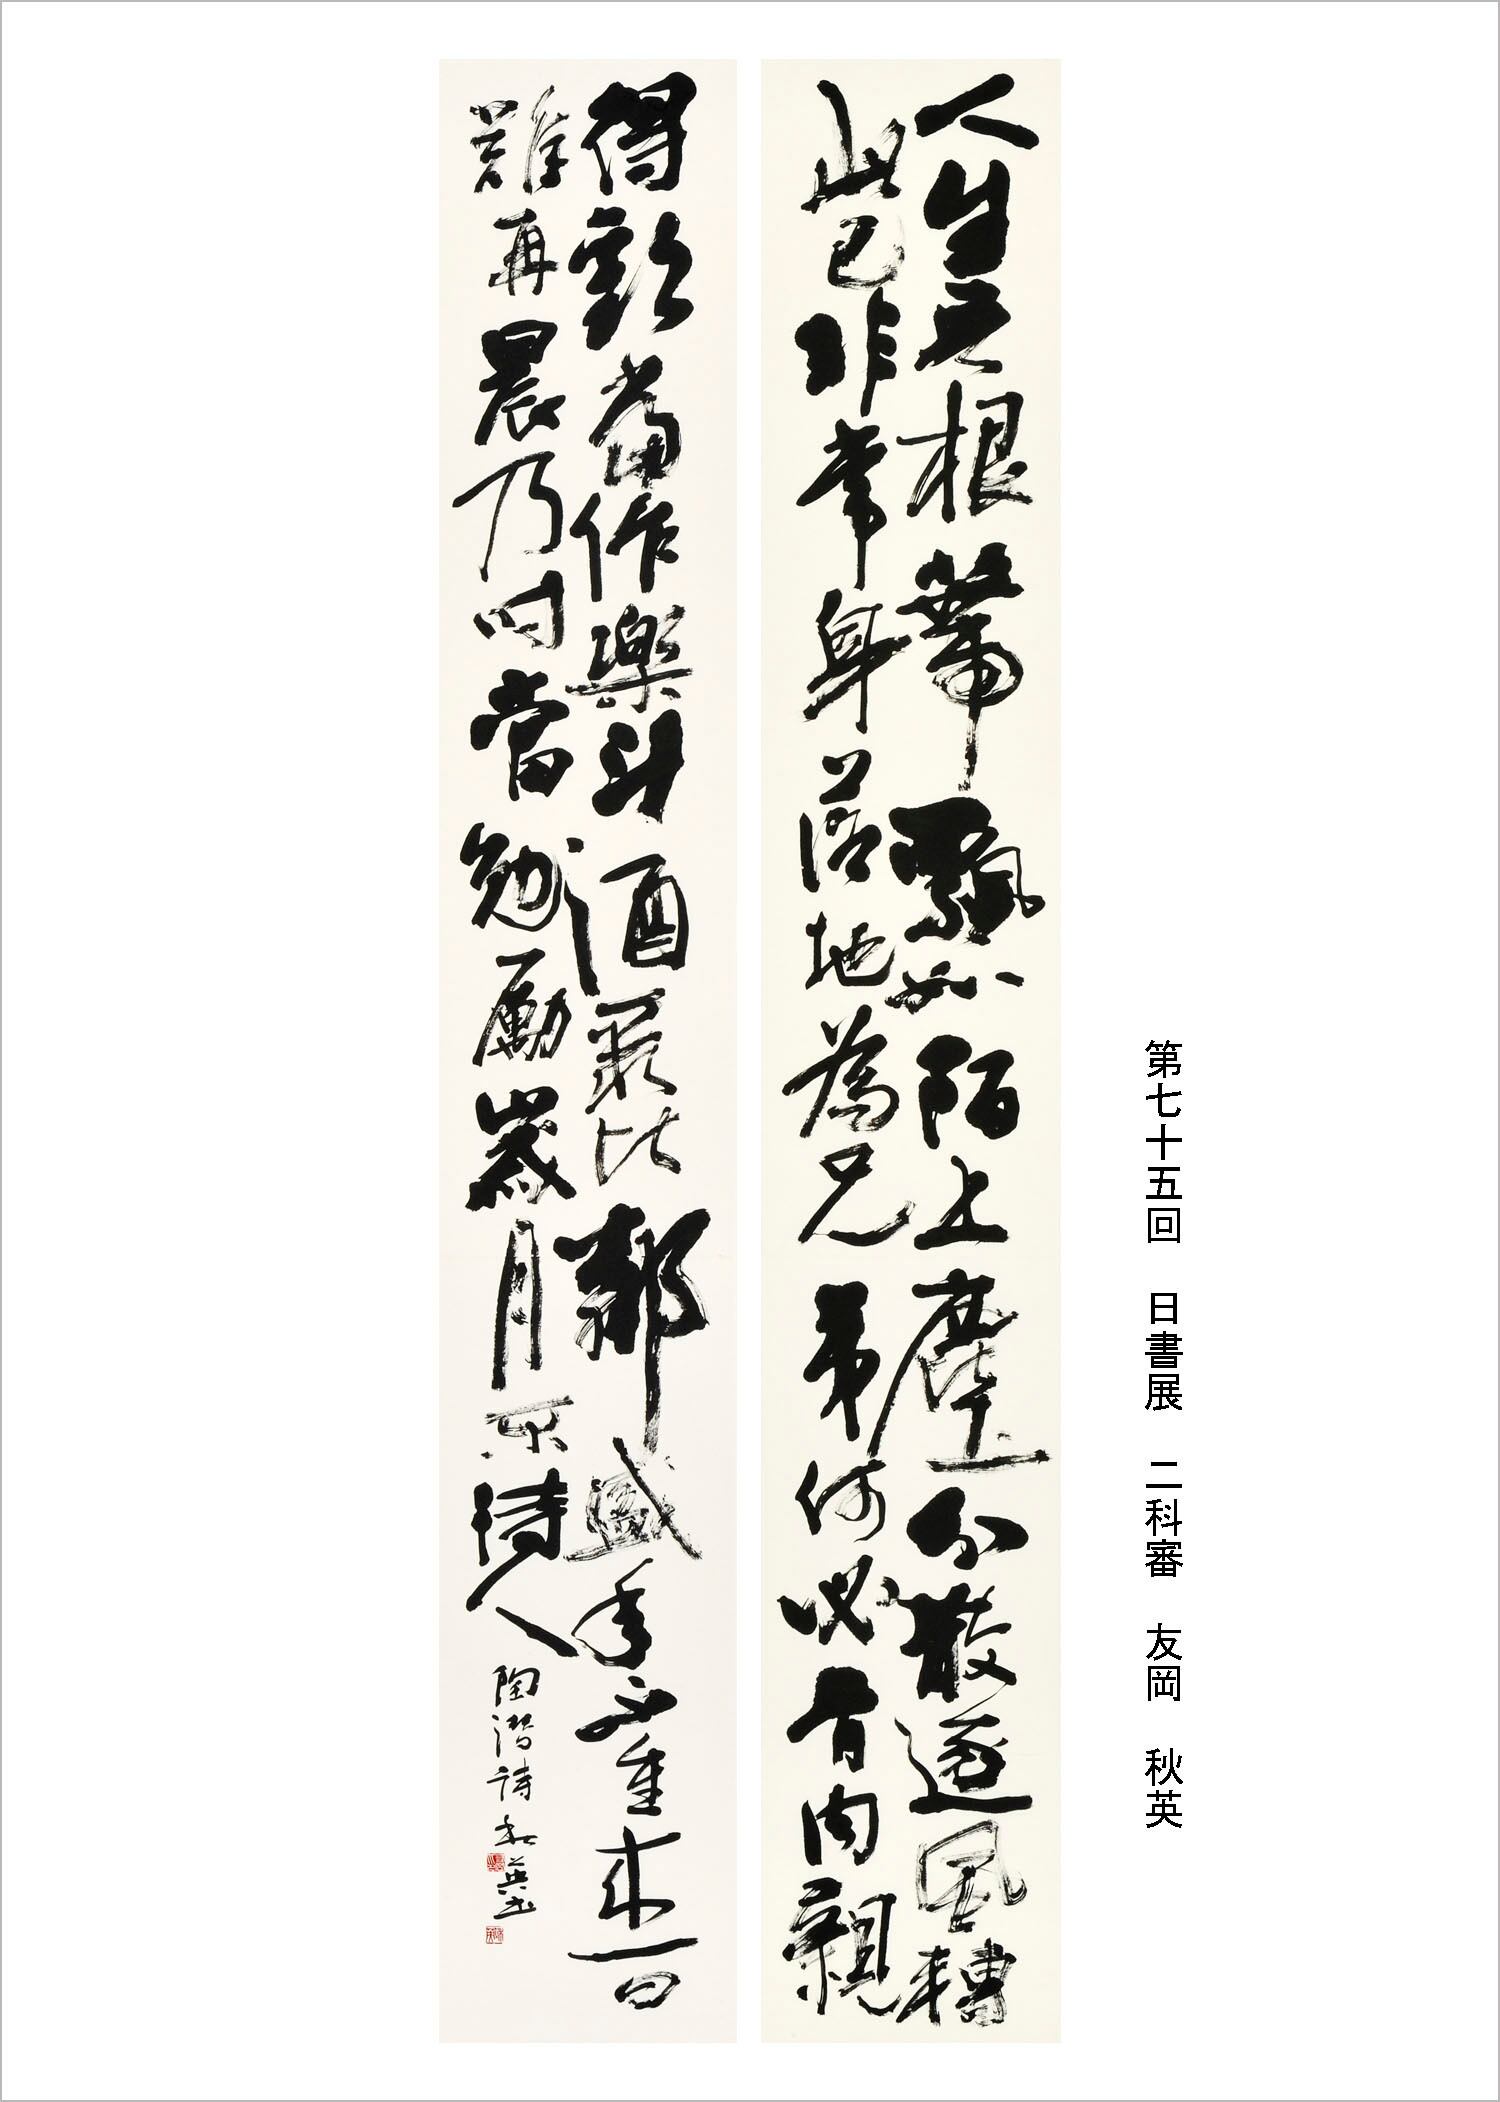 第七十五回 日書展 二科審 友岡 秋英
人生无根蔕飄如陌上塵分散逐風轉
此已非常身落地為兄弟何必骨肉親
得歡當作樂斗酒聚比鄰盛年不重来一日
難再晨及时當勉勵歲月不待人
陶潜詩 秋英書